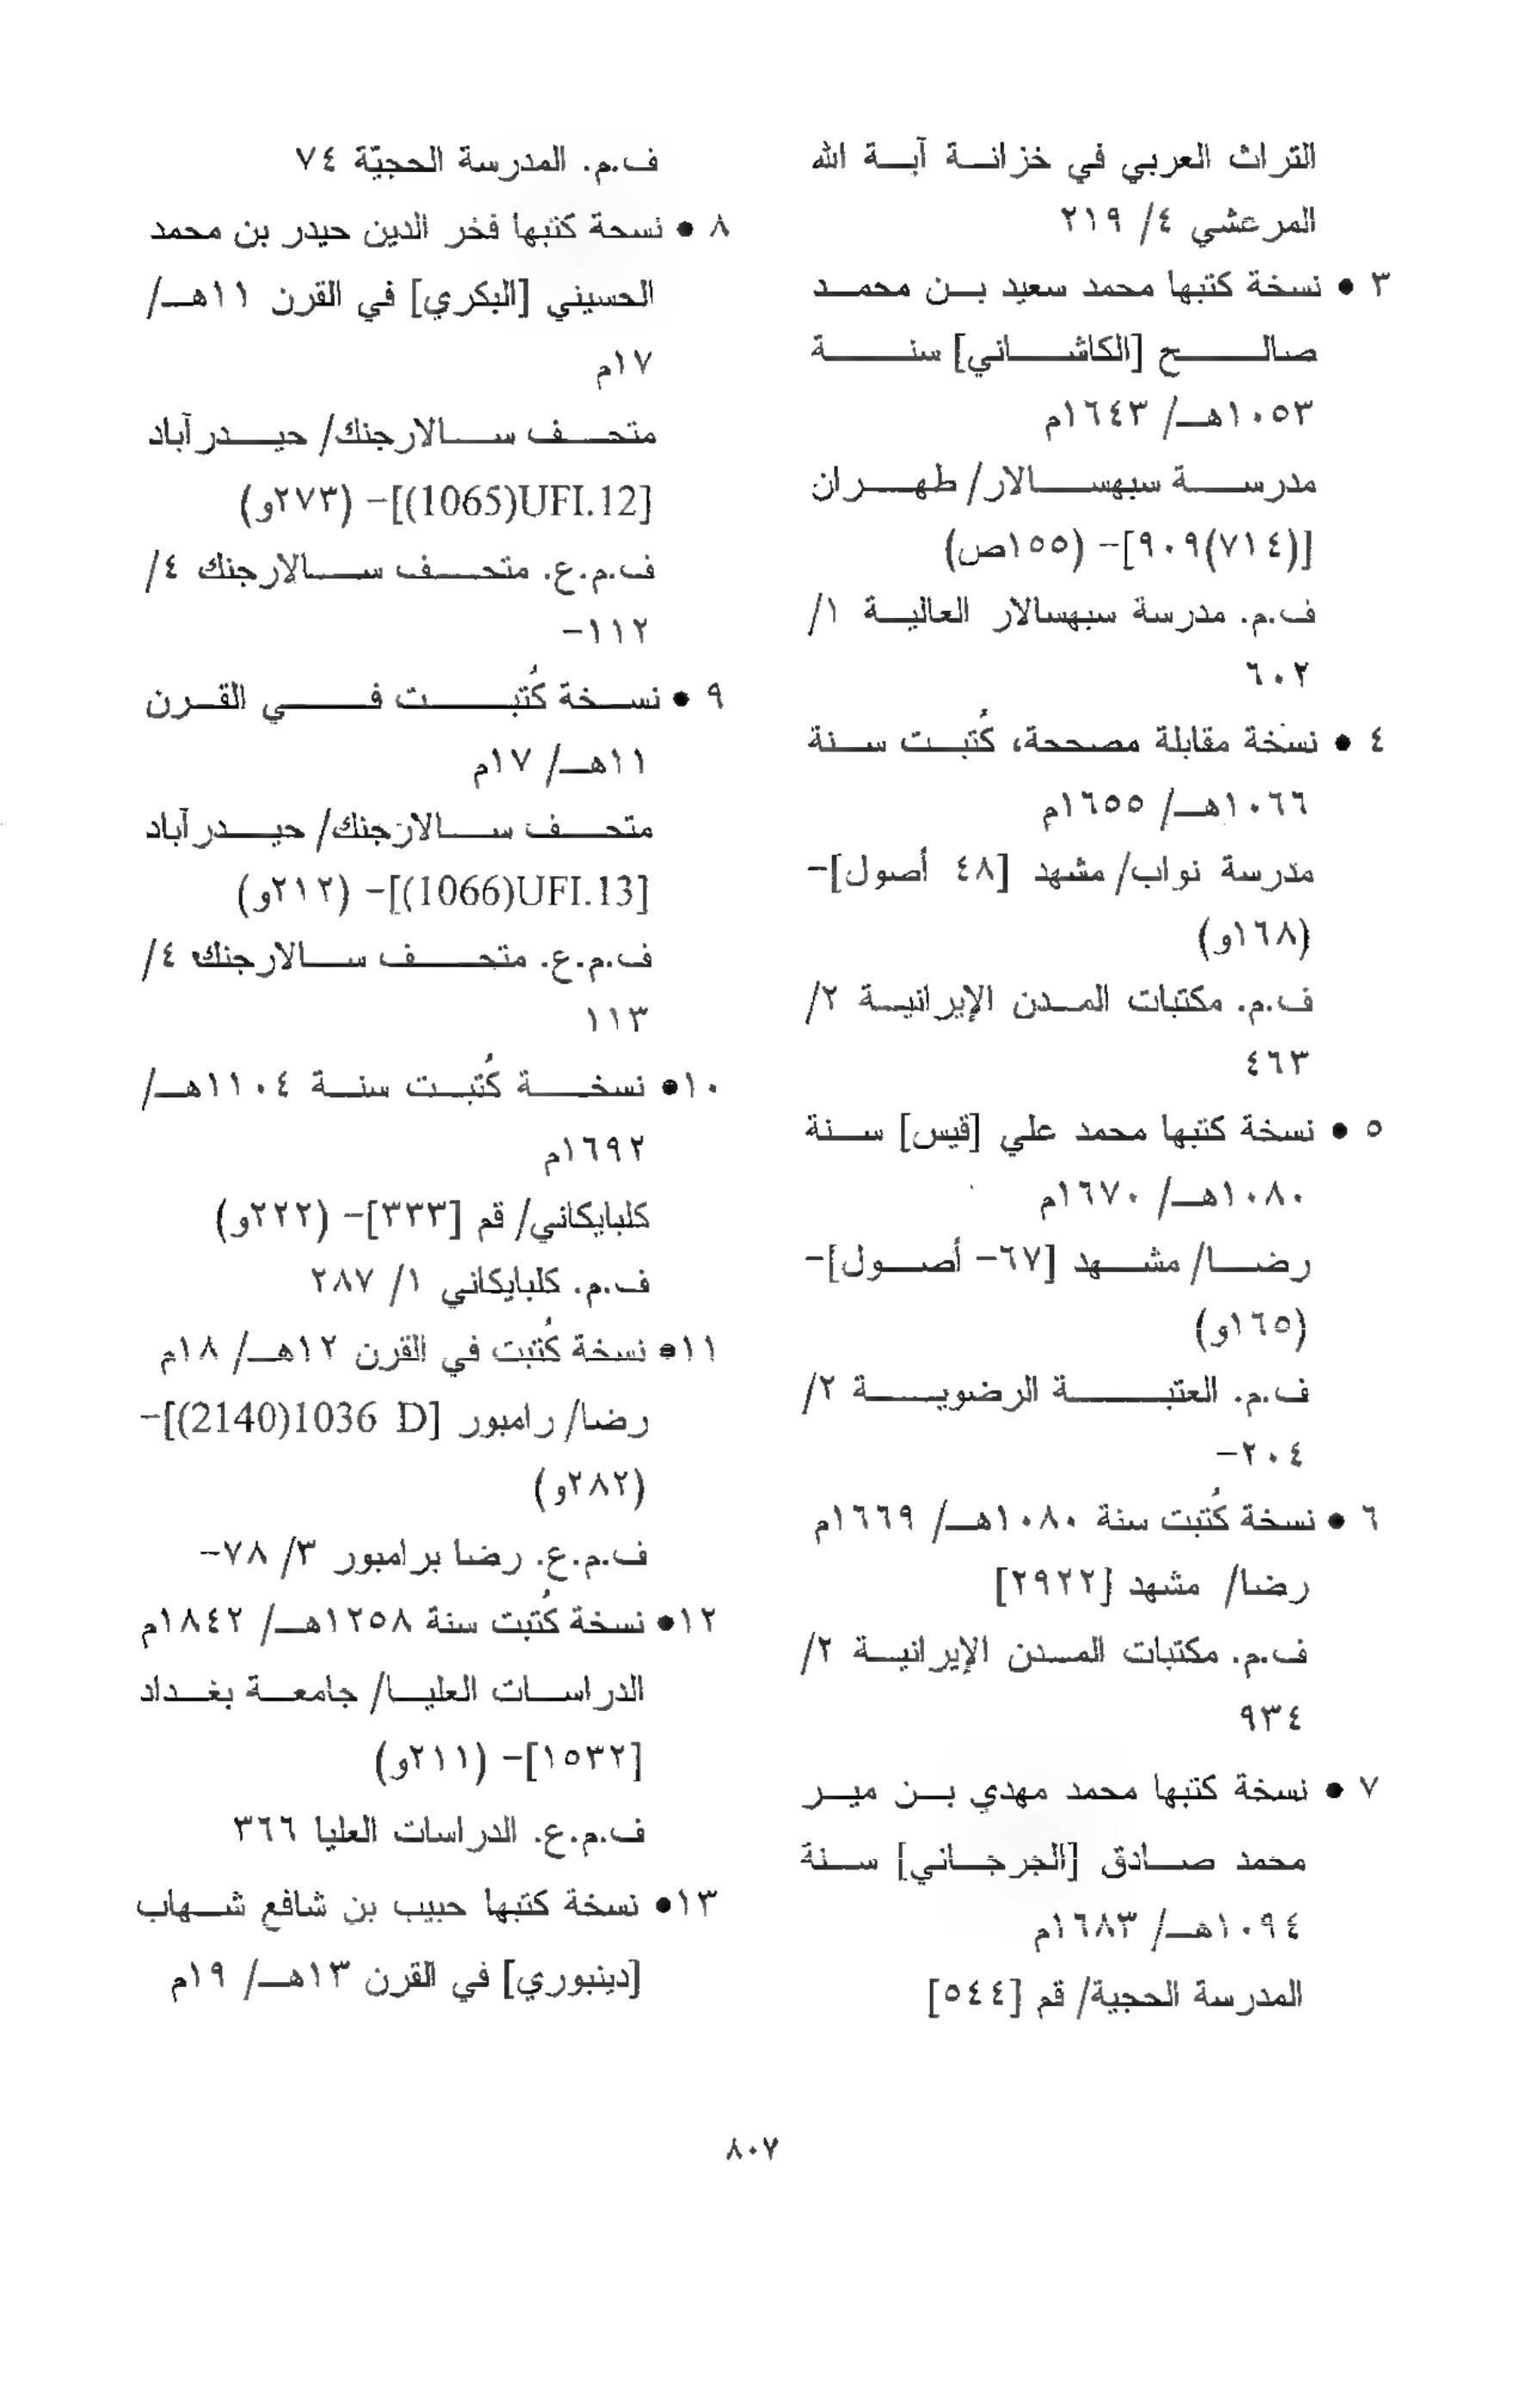 التراث العربي في خزانة آية الله
المرعشي ٤/ ٢١٩
٣ • نسخة كتبها محمد سعيد بن محمد
صالح [الكاشاني] سنة
١٠٥٣هـ/ ١٦٤٣م
مدرسة سبهسالار/ طهران
[(٧١٤)٩٠٩]- (١٥٥ص)
ف.م. مدرسة سبهسالار العالية ١/
٦٠٢
٤ • نسخة مقابلة مصححة، كُتبت سنة
١٠٦٦هـ/ ١٦٥٥م
مدرسة نواب/ مشهد [٤٨ أصول]-
(١٦٨و)
ف.م. مكتبات المدن الإيرانية ٢/
٤٦٣
٥ • نسخة كتبها محمد علي [قيس] سنة
١٠٨٠هـ/ ١٦٧٠م
رضا/ مشهد [٦٧- أصول]-
(١٦٥و)
ف.م. العتبة الرضوية ٢/
٢٠٤-
٦ • نسخة كُتبت سنة ١٠٨٠هـ/ ١٦٦٩م
رضا/ مشهد [٢٩٢٢]
ف.م. مكتبات المدن الإيرانية ٢/
٩٣٤
٧ • نسخة كتبها محمد مهدي بن مير
محمد صادق [الجرجاني] سنة
١٠٩٤هـ/ ١٦٨٣م
المدرسة الحجية/ قم [٥٤٤]
ف.م. المدرسة الحجيّة ٧٤
٨ • نسحة كتبها فخر الدين حيدر بن محمد
الحسيني [البكري] في القرن ١١هـ/
١٧م
متحف سالارجنك/ حيدرآباد
[1065)UFI.12)]- (٢٧٣و)
ف.م.ع. متحف سالارجنك ٤/
١١٢-
٩ • نسخة كُتبت في القرن
١١هـ/ ١٧م
متحف سالارجنك/ حيدرآباد
[1066)UFI.13)]- (٢١٢و)
ف.م.ع. متحف سالارجنك ٤/
١١٣
١٠• نسخة كُتبت سنة ١١٠٤هـ/
١٦٩٢م
كلبايكاني/ قم [٣٣٣]- (٢٢٢و)
ف.م. كلبايكاني ١/ ٢٨٧
١١• نسخة كُتبت في القرن ١٢هـ/ ١٨م
رضا/ رامبور [(2140)1036 D]-
(٢٨٢و)
ف.م.ع. رضا برامبور ٣/ ٧٨-
١٢• نسخة كُتبت سنة ١٢٥٨هـ/ ١٨٤٢م
الدراسات العليا/ جامعة بغداد
[١٥٣٢]- (٢١١و)
ف.م.ع. الدراسات العليا ٣٦٦
١٣• نسخة كتبها حبيب بن شافع شهاب
[دينبوري] في القرن ١٣هـ/ ١٩م
٨٠٧